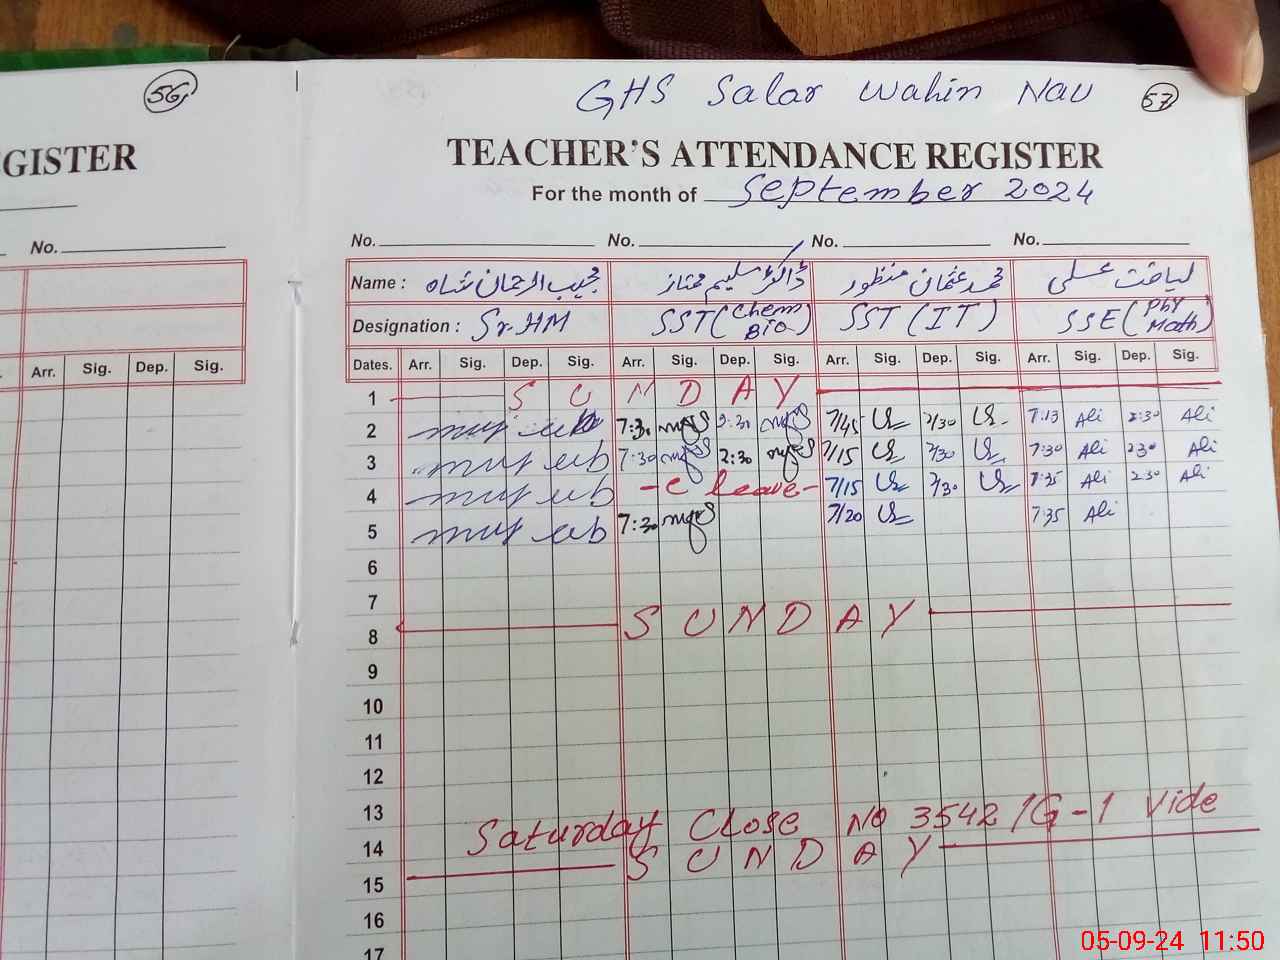 56
GHS Salar Wahin Nau 57
GISTER
TEACHER'S ATTENDANCE REGISTER
For the month of September 2024
No.
No. No. No. No.
Name : مجیب الرحمان شاہ ڈاکٹر سلیم ممتاز محمد عثمان منظور لیاقت علی
Designation : Sr. HM SST (Chem Bio) SST (IT) SSE (Phy Math)
Arr. Sig. Dep. Sig.
Dates. Arr. Sig. Dep. Sig. Arr. Sig. Dep. Sig. Arr. Sig. Dep. Sig. Arr. Sig. Dep. Sig.
1 SUNDAY
2 7:30 2:30 7/45 2/30 7:13 Ali 2:30 Ali
3 7:30 2:30 7/15 2/30 7:30 Ali 230 Ali
4 - C leave - 7/15 2/30 7:35 Ali 2:30 Ali
5 7:30 7/20 7:35 Ali
6
7
8 SUNDAY
9
10
11
12
13
14 Saturday Close No 3542/G-1 Vide
15 SUNDAY
16
17
05-09-24 11:50